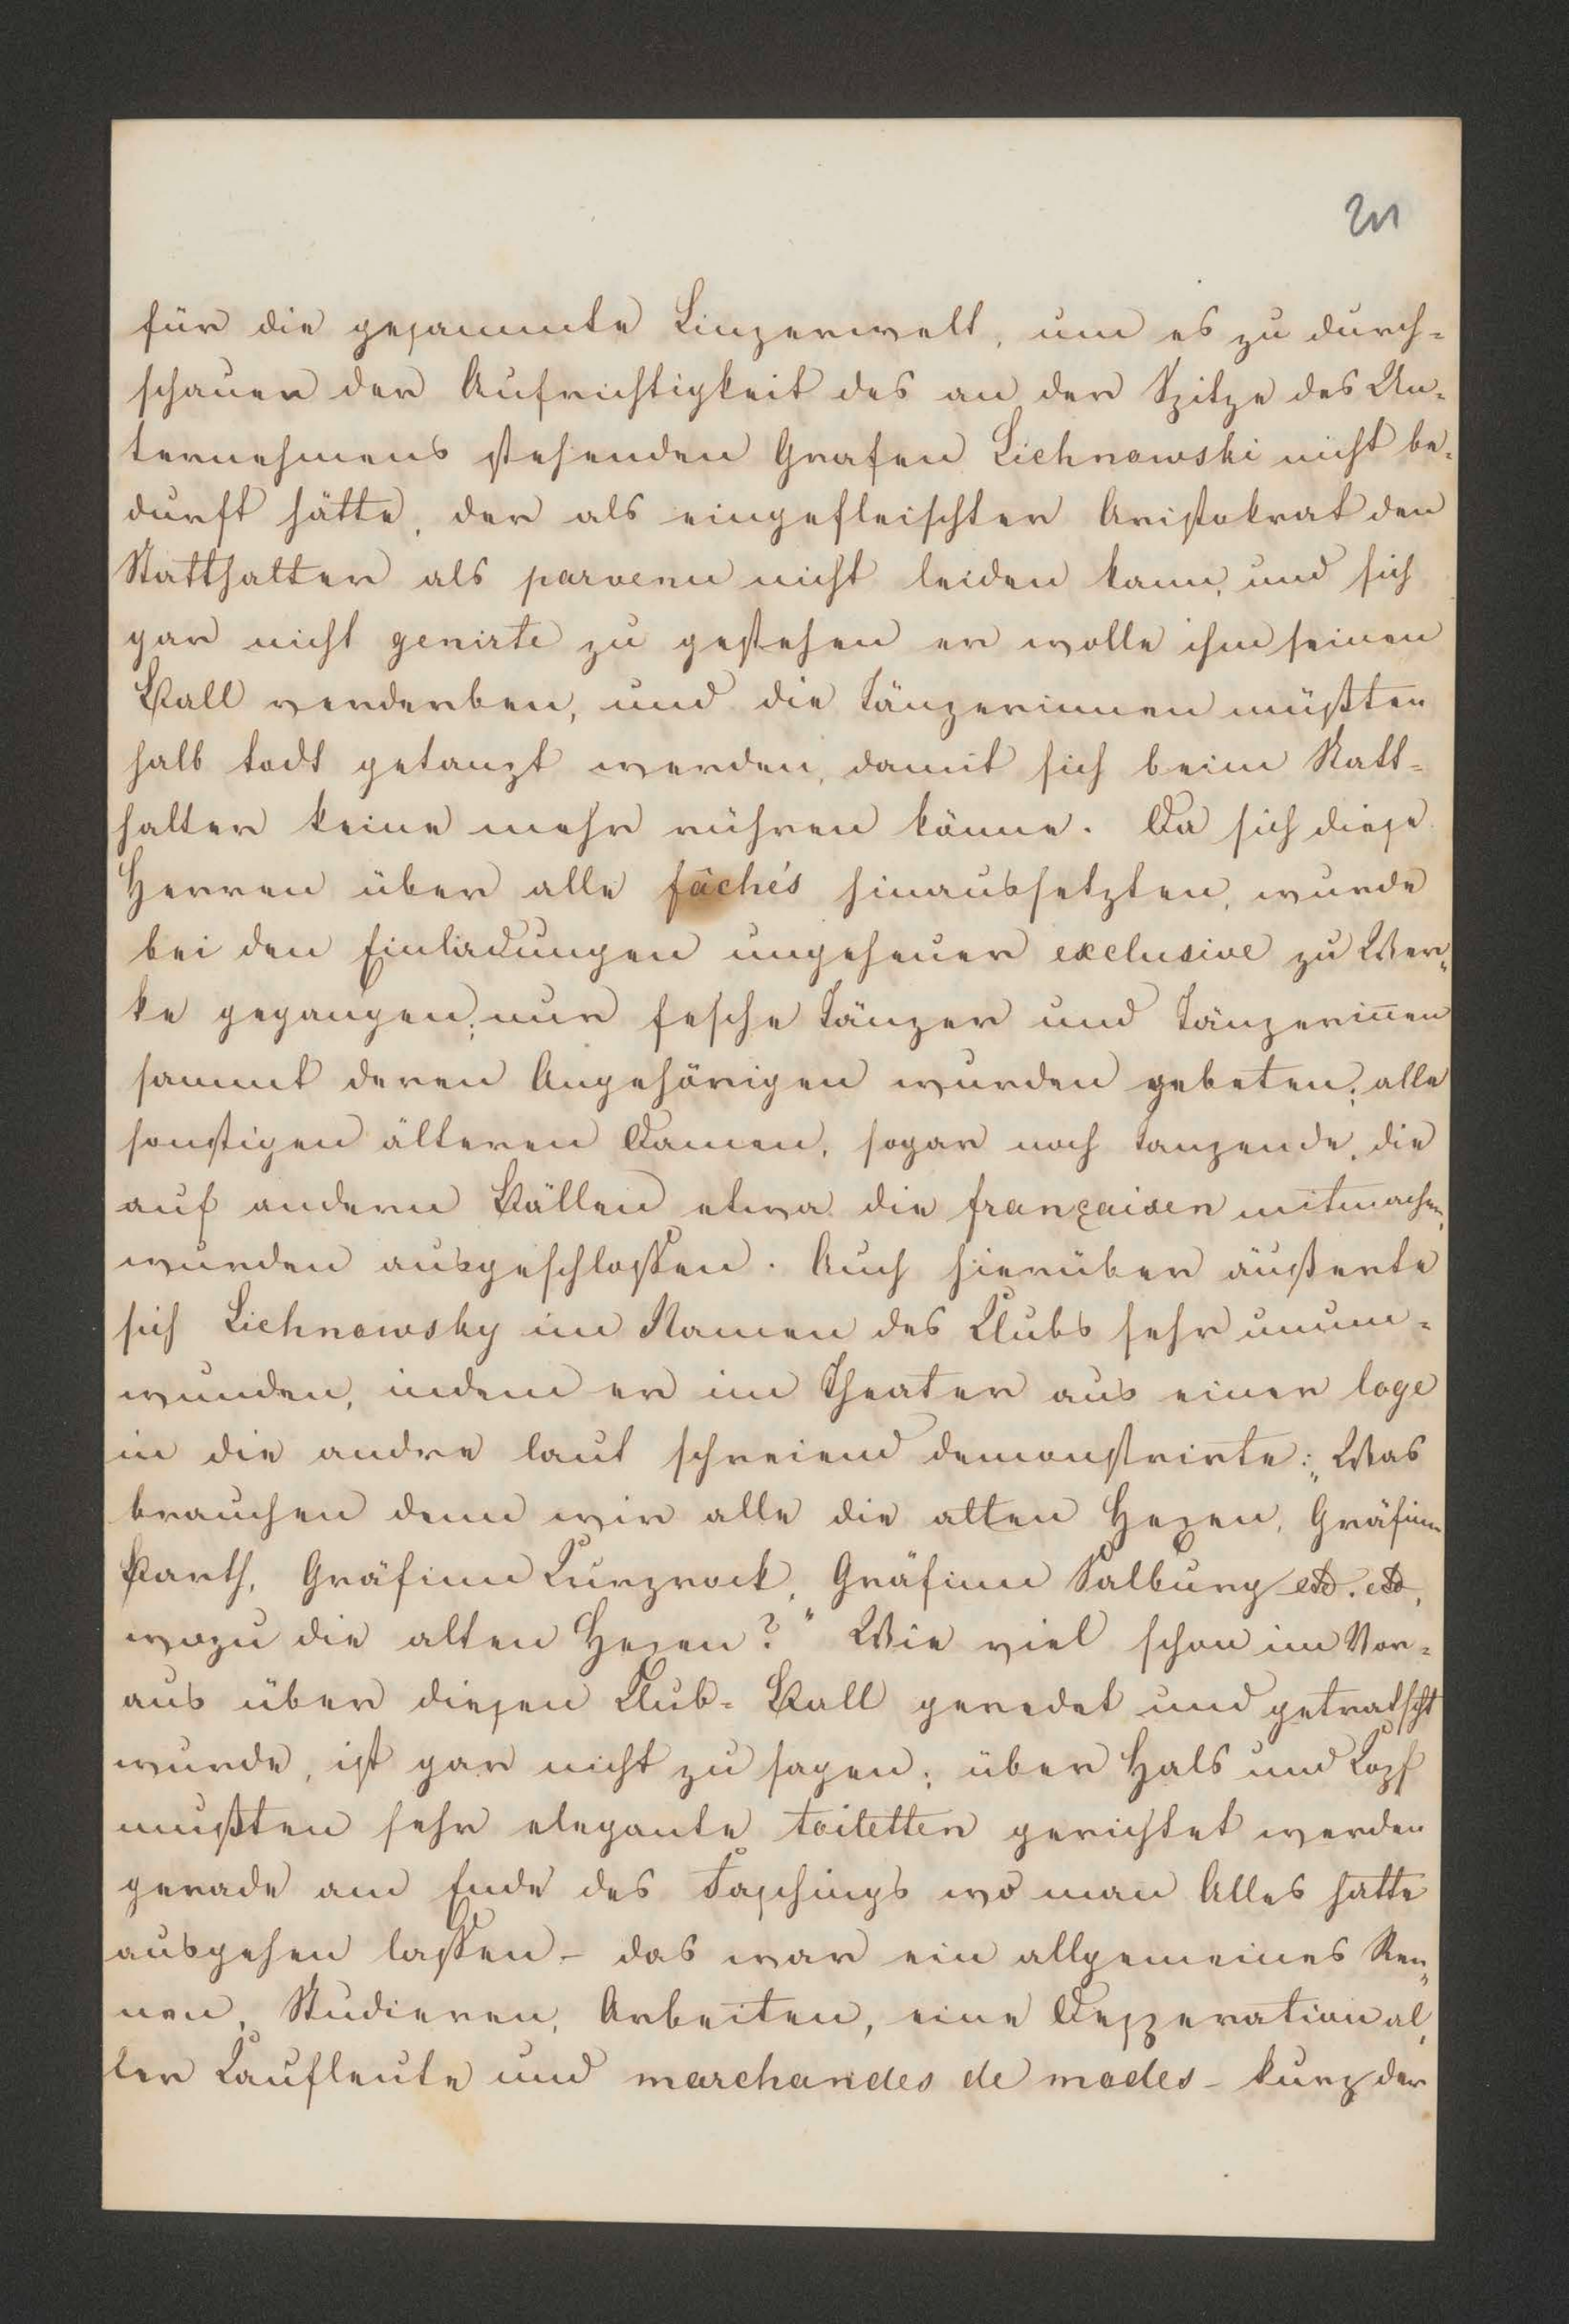 für die gesammte Linzerwelt, um es zu durch-
schauen der Aufrichtigkeit des an der Spitze des Un-
ternehmens stehenden Grafen Lichnowski nicht be-
durft hätte, der als eingefleischter Aristokrat den
Statthalter als parvenu nicht leiden kann, und sich
gar nicht genirte zu gestehen er wolle ihm seinen
Ball verderben, und die Tänzerinnen müßten
halb todt getanzt werden, damit sich beim Statt-
halter keine mehr rühren könne. Da sich diese
Herren über alle fâchés hinaussetzten, wurde
bei den Einladungen ungeheuer exclusive zu Wer„
ke gegangen; nur fesche Tänzer und Tänzerin̅en
sammt deren Angehörigen wurden gebeten; alle
sonstigen älteren Damen, sogar noch tanzende, die
auf andern Bällen etwa die françaisen mitmachen,
wurden ausgeschlossen. Auch hierüber äußerte
sich Lichnowsky im Namen des Clubs sehr unum-
wunden, indem er im Theater aus einer loge
in die andre laut schreiend demonstrirte: „Was
brauchen denn wir alle die alten Hexen, Gräfinn
Barth, Gräfinn Kurzrock, Gräfinn Salburg etc. etc,
wozu die alten Hexen?" Wie viel schon im Vor-
aus über diesen Club-Ball geredet und getratscht
wurde, ist gar nicht zu sagen; über Hals und Kopf
mußten sehr elegante toiletten gerichtet werden
gerade am Ende des Faschings wo man Alles hatte
ausgehen lassen - das war ein allgemeines Ren„
nen, Studieren, Arbeiten, eine Desperation al„
ler Kaufleute und marchandes de modes - kurz der